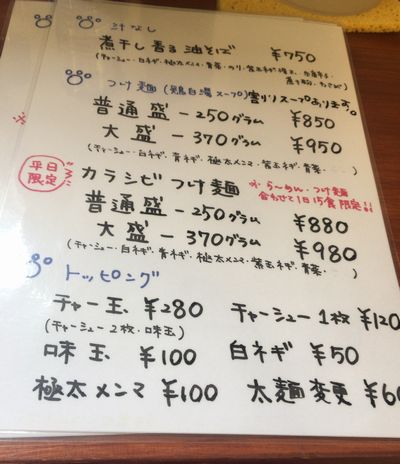 汁なし
煮干し香る油そば ¥750
つけ麺（鶏白湯スープ）割りスープあります。
普通盛－250グラム ¥850
大盛－370グラム ¥950
（チャーシュー・白ネギ・青ネギ・極太メンマ・紫玉ネギ・青菜・
平日限定
カラシビつけ麺
らーめん・つけ麺
合わせて1日15食限定!!
普通盛－250グラム ¥880
大盛－370グラム ¥980
（チャーシュー・白ネギ・青ネギ・極太メンマ・紫玉ネギ・青菜・
トッピング
チャー玉 ¥280 チャーシュー1枚 ¥120
（チャーシュー2枚・味玉）
味玉 ¥100 白ネギ ¥50
極太メンマ ¥100 太麺変更 ¥60